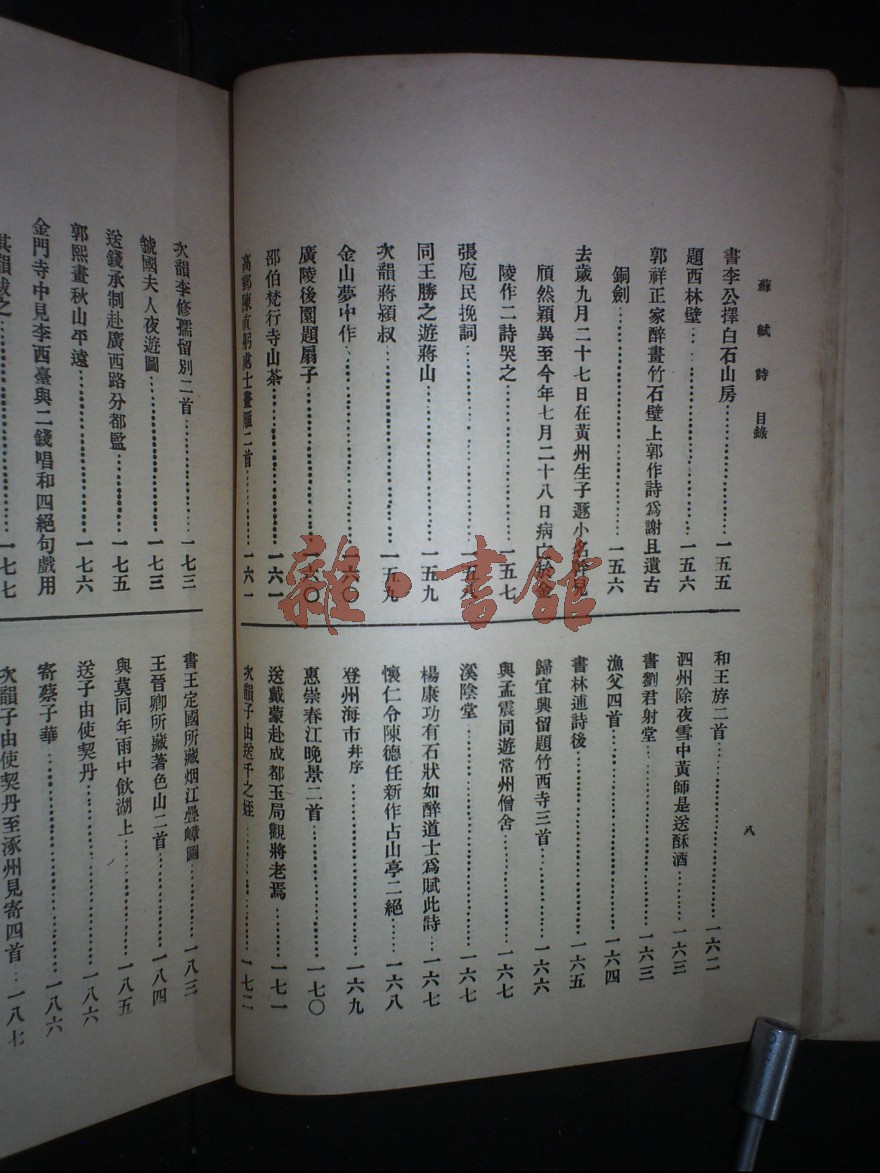 蘇軾詩 目錄
八
書李公擇白石山房……一五五
題西林壁……一五六
郭祥正家醉畫竹石壁上郭作詩爲謝且遺古
銅劍……一五六
去歲九月二十七日在黃州生子遯小名
頎然穎異至今年七月二十八日病亡於金
陵作二詩哭之……一五七
張庖民挽詞……一五八
同王勝之遊蔣山……一五九
次韻蔣穎叔……一五九
金山夢中作……一六〇
廣陵後園題扇子……一六〇
邵伯梵行寺山茶……一六一
高郵陳直躬處士畫雁二首……一六一
和王斿二首……一六二
泗州除夜雪中黃師是送酥酒……一六三
書劉君射堂……一六三
漁父四首……一六四
書林逋詩後……一六五
歸宜興留題竹西寺三首……一六六
與孟震同遊常州僧舍……一六七
溪陰堂……一六七
楊康功有石狀如醉道士爲賦此詩……一六七
懷仁令陳德任新作占山亭二絕……一六八
登州海市幷序……一六九
惠崇春江晚景二首……一七〇
送戴蒙赴成都玉局觀將老焉……一七一
次韻子由送千之姪……一七二
次韻李修孺留別二首……一七三
虢國夫人夜遊圖……一七三
送錢承制赴廣西路分都監……一七五
郭熙畫秋山平遠……一七六
金門寺中見李西臺與二錢唱和四絕句戲用
其韻跋之……一七七
書王定國所藏烟江疊嶂圖……一八三
王晉卿所藏著色山二首……一八四
與莫同年雨中飲湖上……一八五
送子由使契丹……一八六
寄蔡子華……一八六
次韻子由使契丹至涿州見寄四首……一八七
雜·書館